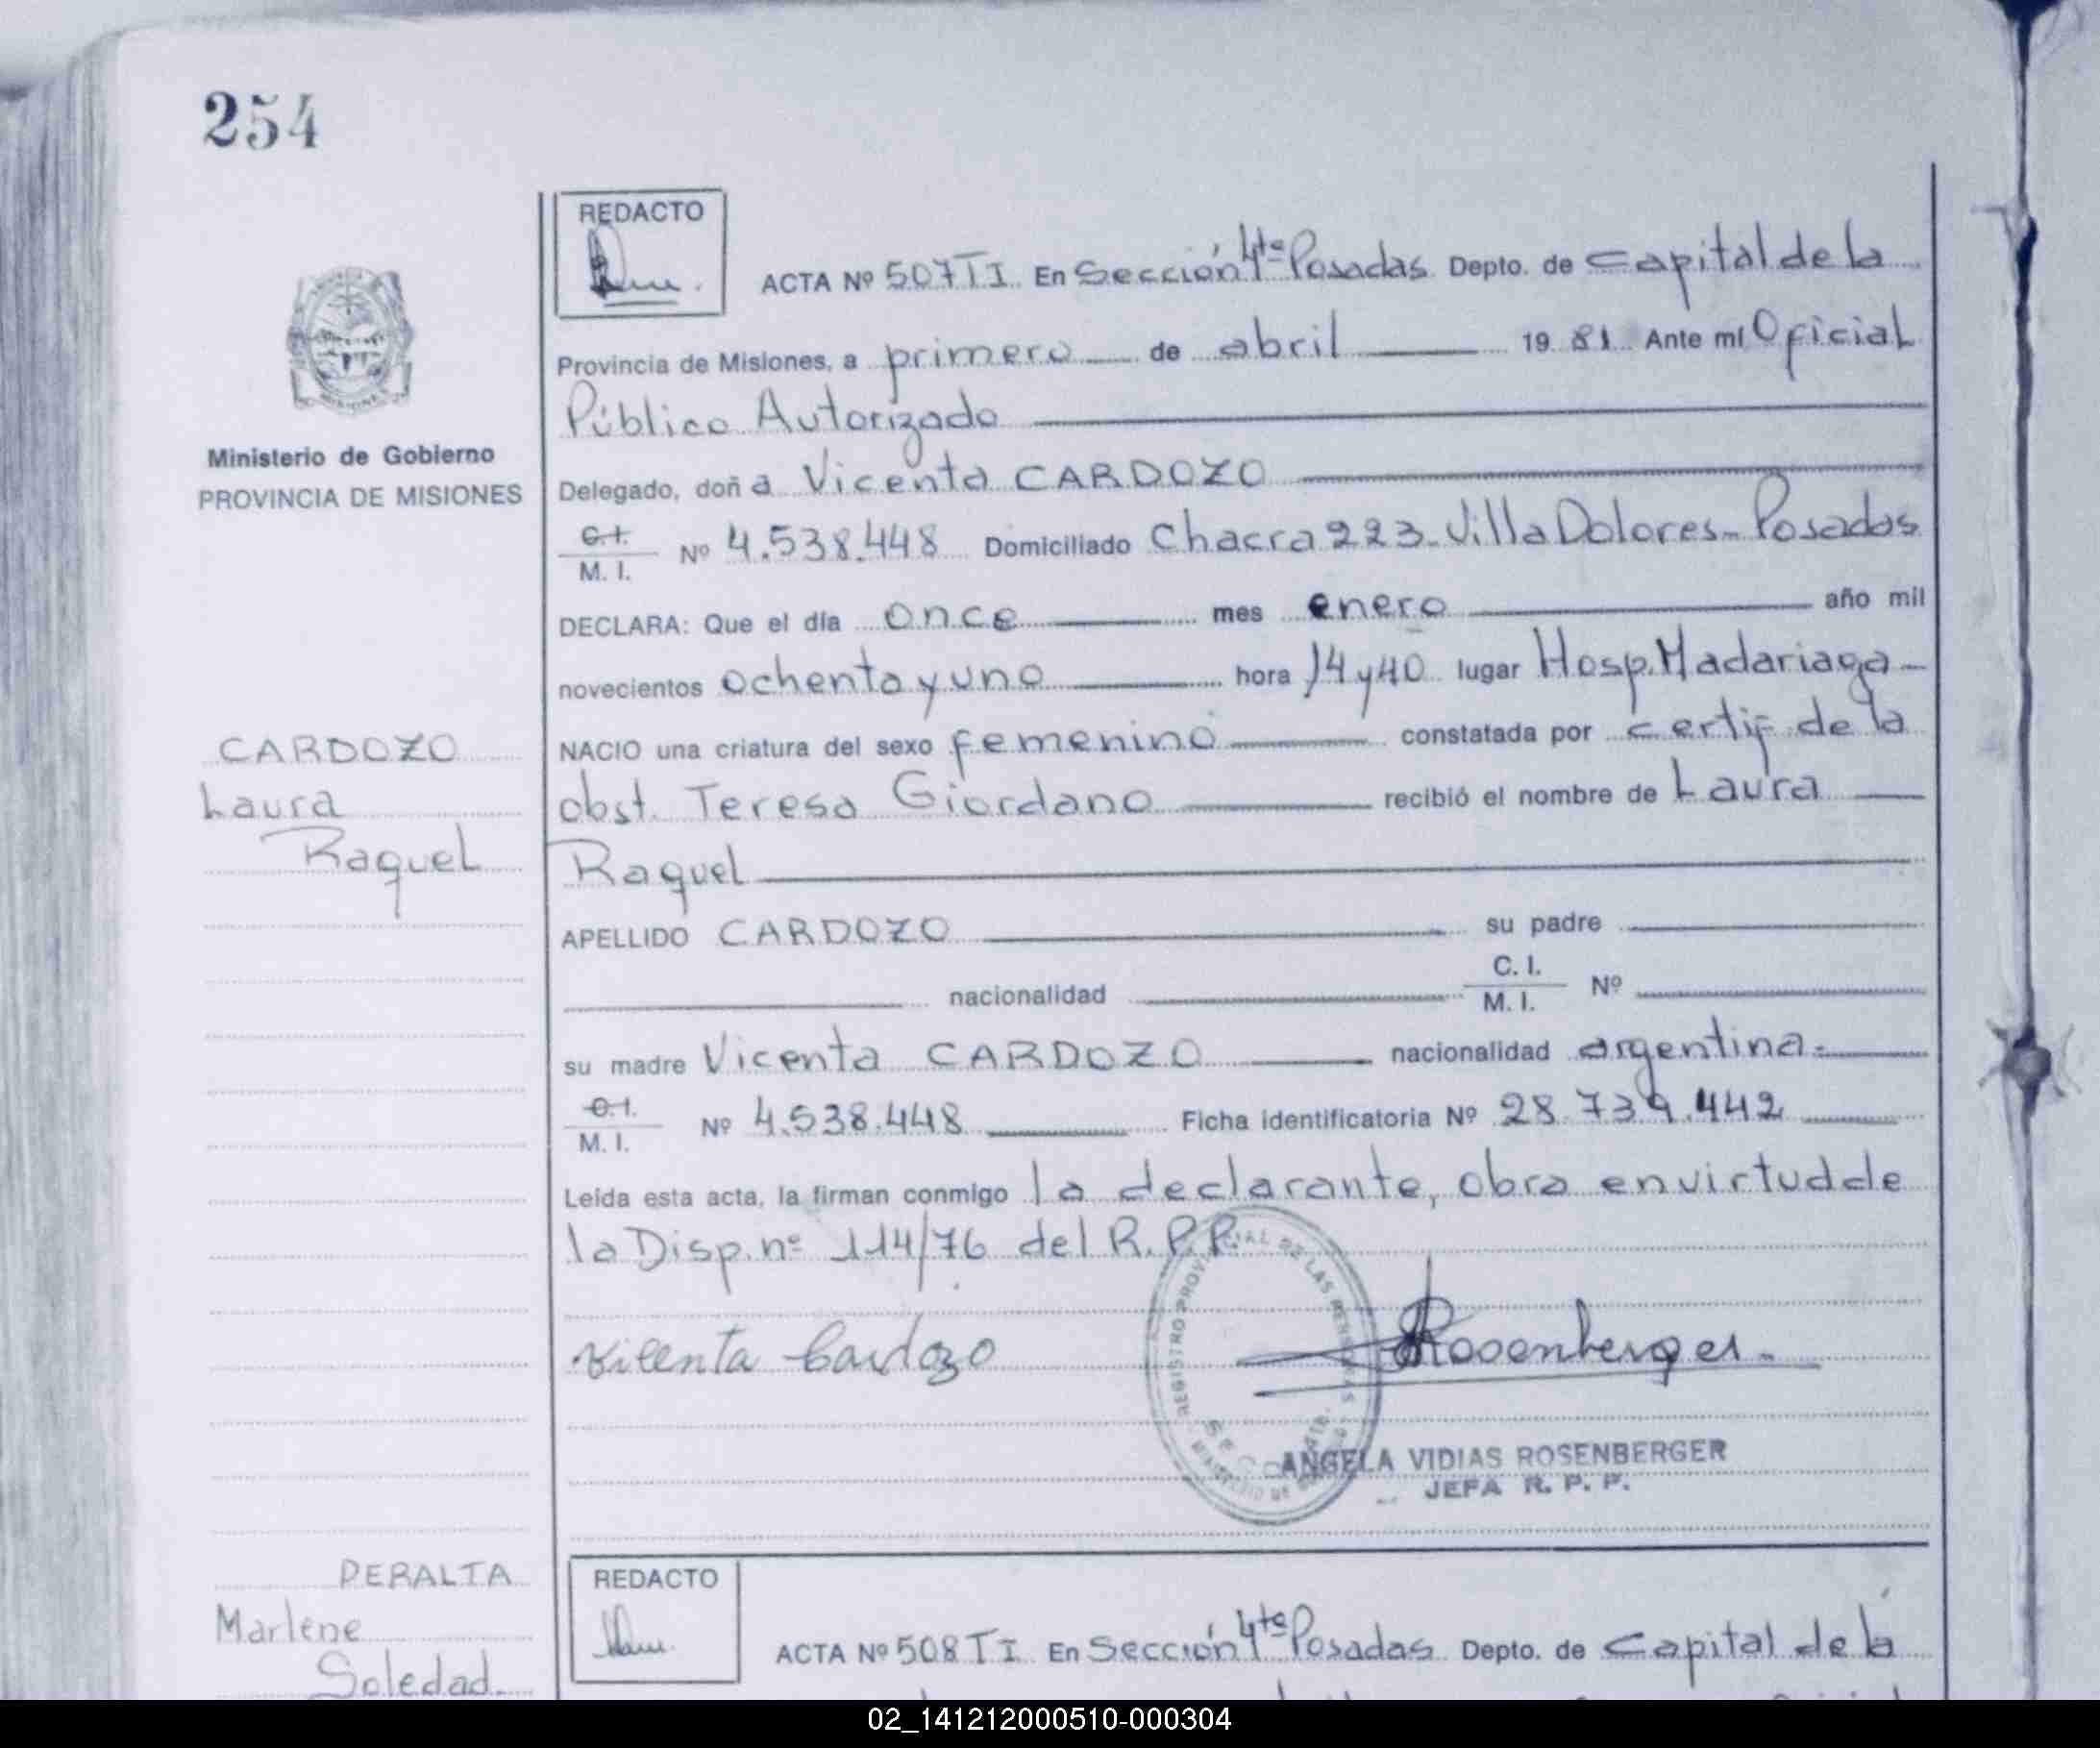 254
REDACTO
ACTA Nº 507 TI En Sección 4ta Posadas Depto. de Capital de la
Provincia de Misiones, a primero de abril 1981 Ante mí Oficial
Público Autorizado
Ministerio de Gobierno
PROVINCIA DE MISIONES
Delegado, doña Vicenta CARDOZO
C.I. M. I. Nº 4.538.448 Domiciliado Chacra 223-Villa Dolores-Posadas
DECLARA: Que el día once mes enero año mil
novecientos ochenta y uno hora 14 y 40 lugar Hosp. Madariaga-
CARDOZO
Laura
Raquel
NACIO una criatura del sexo femenino constatada por certif de la
obst. Teresa Giordano recibió el nombre de Laura
Raquel
APELLIDO CARDOZO su padre
nacionalidad C. I. M. I. Nº
su madre Vicenta CARDOZO nacionalidad argentina.
C.I. M. I. Nº 4.538.448 Ficha identificatoria Nº 28.739.442
Leída esta acta, la firman conmigo la declarante, obra en virtud de
la Disp. nº 114/76 del R.P.P.
Vicenta Cardozo
Rosenberger
ANGELA VIDIAS ROSENBERGER
JEFA R. P. P.
PERALTA
Marlene
Soledad
REDACTO
ACTA Nº 508 TI En Sección 4ta Posadas Depto. de Capital de la
02_141212000510-000304